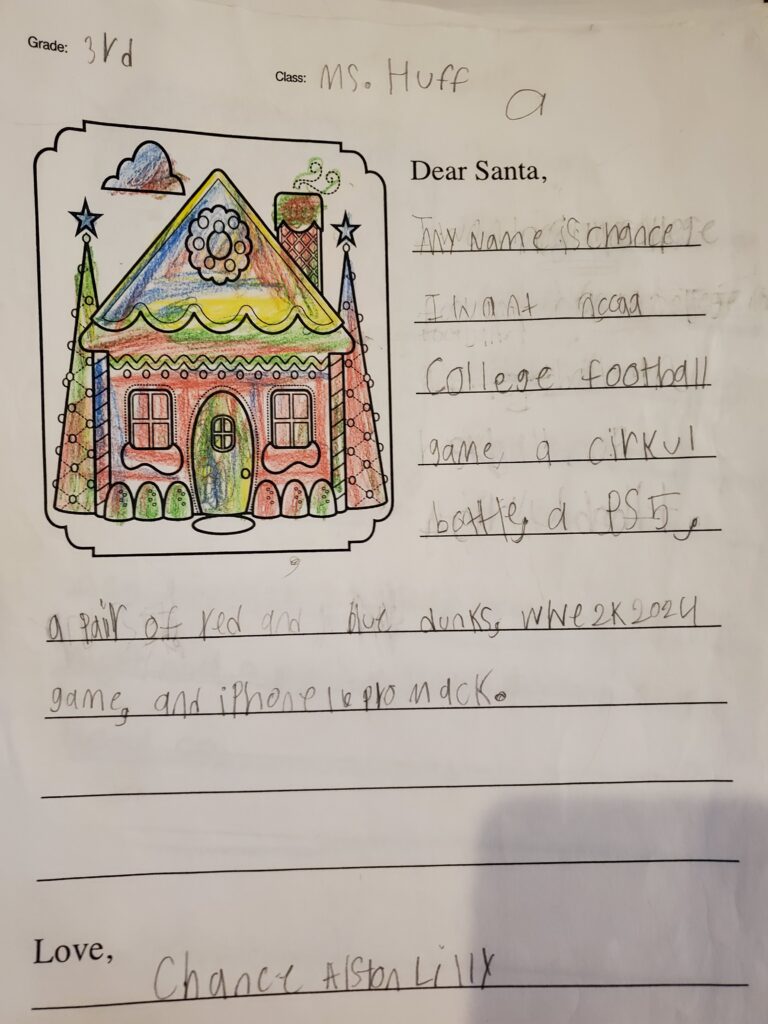 Grade: 3rd
Class: Ms. Huff
a
Dear Santa,
My Name is chance
I want ncaa
College football
game a cirkul
bottle, a PS5,
a pair of red and blue dunks, WWe 2K2024
game, and iPhone 16 pro mack.
Love,
Chance Alston Lilly